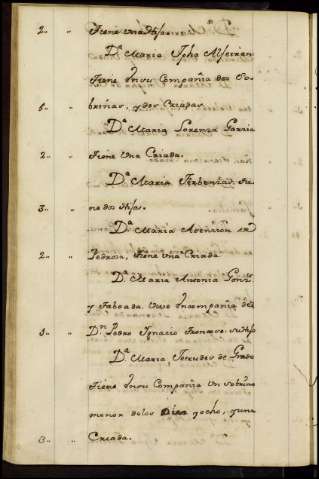 2. " Tiene una Hija.
D.ª Maria Jpha
Tiene Ensu Compañia dos So-
5. " brinas, y dos Criadas.
D.ª Maria Lorenza Garzia
2. " Tiene Una Criada.
D.ª Maria tie-
3. " ne dos Hijas.
D.ª Maria
2. " Pedrosa, tiene Una Criada
D.ª Maria Antonia Gonz.
y Taboada. Vive Encompañia de
D.n Pedro Ignacio su Hijo
D.ª Maria de Prado
Tiene Ensu Compañia Un sobrino
menor delos Diez yocho, yuna
3. " Criada.